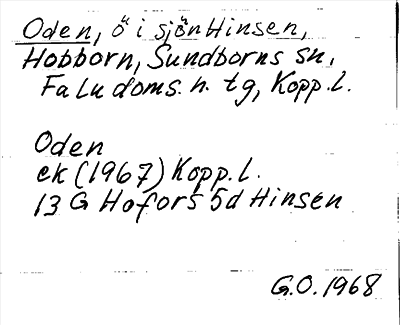 Oden, ö i sjön Hinsen,
Hobborn, Sundborns sn,
Falu doms. n. tg, Kopp. l.
Oden
ek (1967) Kopp. l.
13 G Hofors 5d Hinsen
G.O. 1968